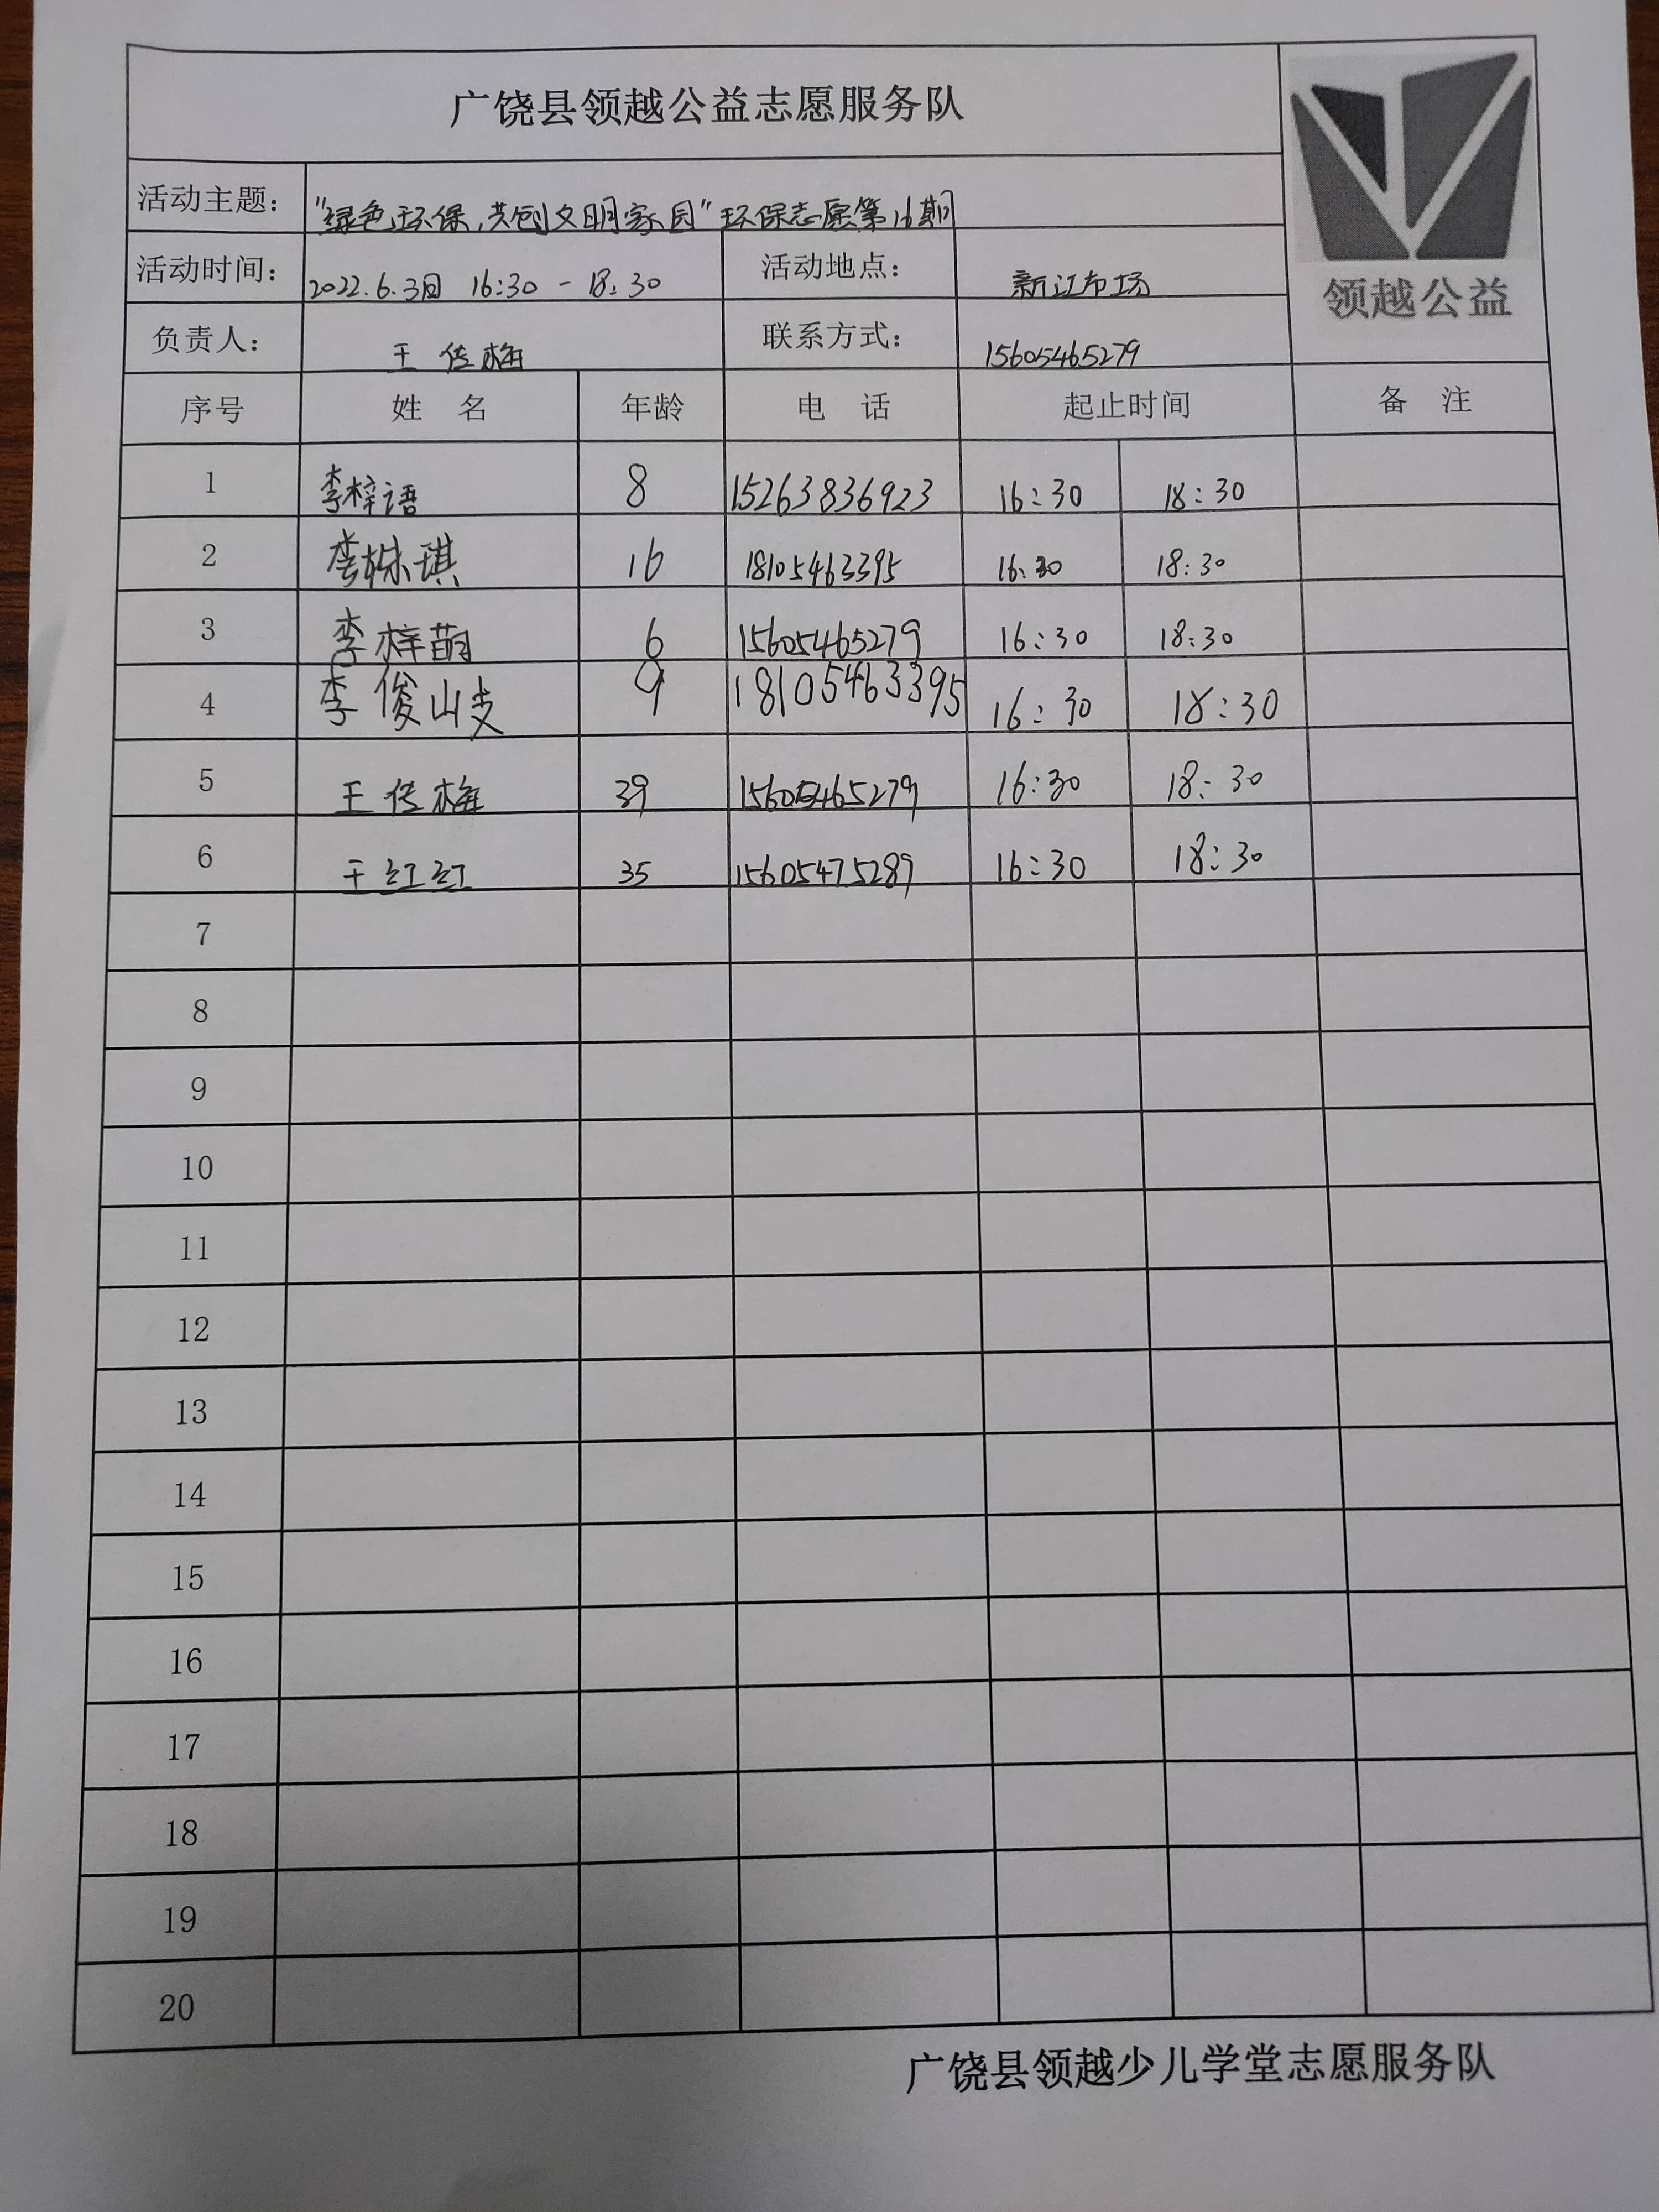 广饶县领越公益志愿服务队
领越公益
活动主题： "绿色环保，共创文明家园"环保志愿第16期
活动时间： 2022.6.3日 16:30 - 18:30 活动地点： 新江市场
负责人： 王传梅 联系方式： 15605465279
序号 姓 名 年龄 电 话 起止时间 备 注
1 李梓语 8 15263836923 16:30 18:30
2 李姝琪 16 18105463395 16:30 18:30
3 李梓萌 6 15605465279 16:30 18:30
4 李俊 9 18105463395 16:30 18:30
5 王传梅 39 15605465279 16:30 18:30
6 王红红 35 15605475289 16:30 18:30
7
8
9
10
11
12
13
14
15
16
17
18
19
20
广饶县领越少儿学堂志愿服务队